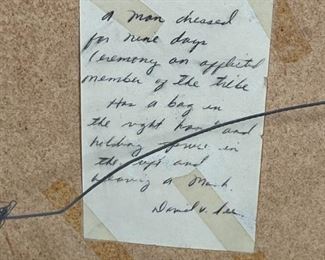 a man dressed
for nine days
ceremony on afflicted
member of the tribe
Has a bag in
the right hand and
holding in
the left and
wearing a Mask.
Daniel v.